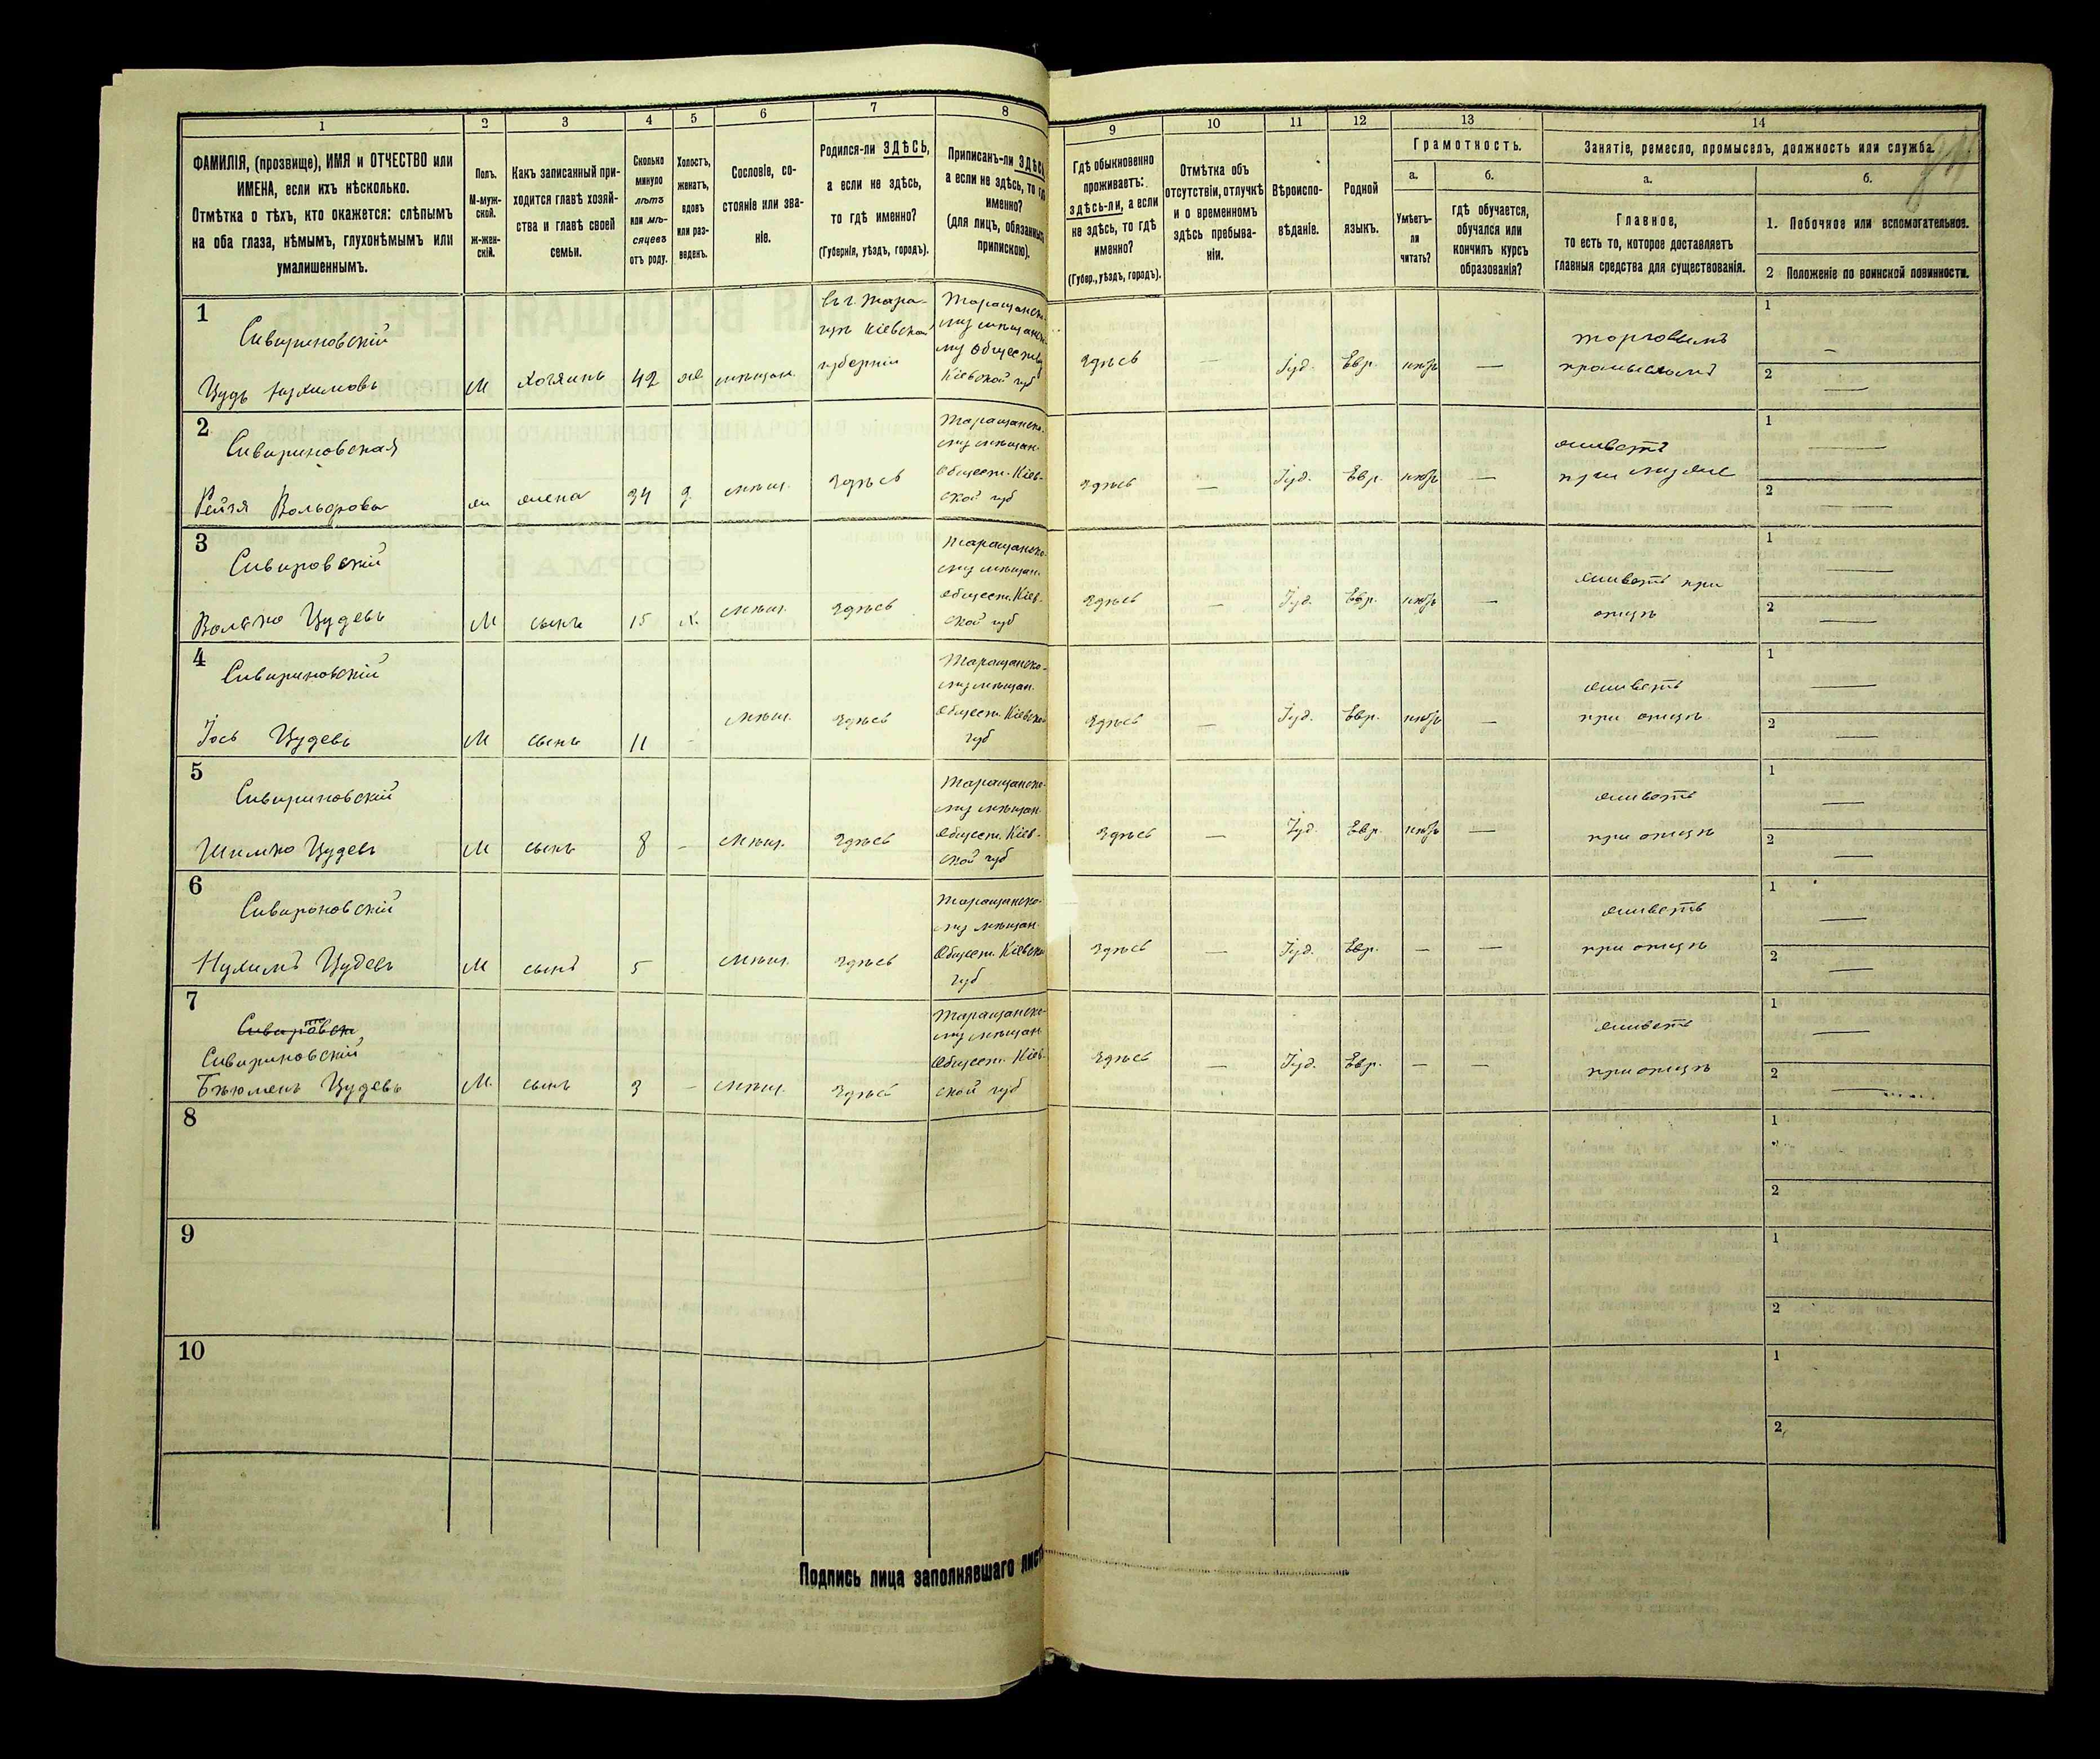 1
2
3
4
5
6
7
8
ФАМИЛІЯ, (прозвище), ИМЯ и ОТЧЕСТВО или
ИМЕНА, если ихъ нѣсколько.
Отмѣтка о тѣхъ, кто окажется: слѣпымъ
на оба глаза, нѣмымъ, глухонѣмымъ или
умалишеннымъ.
Полъ.
М-муж-
ской.
ж-жен-
скій.
Какъ записанный при-
ходится главѣ хозяй-
ства и главѣ своей
семьи.
Сколько
минуло
лѣтъ
или мѣ-
сяцевъ
отъ роду.
Холостъ,
женатъ,
вдовъ
или раз-
веденъ.
Сословіе, со-
стояніе или зва-
ніе.
Родился-ли ЗДѢСЬ,
а если не здѣсь,
то гдѣ именно?
(Губернія, уѣздъ, городъ).
Приписанъ-ли ЗДѢСЬ
а если не здѣсь, то гдѣ
именно?
(для лицъ, обязанныхъ
припискою).
9
10
11
12
13
14
Гдѣ обыкновенно
проживаетъ:
здѣсь-ли, а если
не здѣсь, то гдѣ
именно?
(Губер., уѣздъ, городъ).
Отмѣтка объ
отсутствіи, отлучкѣ
и о временномъ
здѣсь пребыва-
ніи.
Вѣроиспо-
вѣданіе.
Родной
языкъ.
Грамотность.
а.
б.
Умѣетъ-
ли
читать?
гдѣ обучается,
обучался или
кончилъ курсъ
образованія?
Занятіе, ремесло, промыселъ, должность или служба.
а.
б.
Главное,
то есть то, которое доставляетъ
главныя средства для существованія.
1. Побочное или вспомогательное.
2 Положеніе по воинской повинности.
1
Сивириновскій
Цудь Нухимовъ
М
хозяинъ
42
же
мѣщан.
Въ г. Тара-
щѣ Кіевской
губерніи
Таращанско-
му мѣщанско-
му Обществу
Кіевской губ
здѣсь
—
Іуд.
Евр.
нѣтъ
—
торговымъ
промысломъ
1
—
2
—
2
Сивириновская
Рейзя Вольфова
ж
жена
34
з
мѣщ.
здѣсь
Таращанско-
му мѣщан.
Общест. Кіев-
ской губ
здѣсь
—
Іуд.
Евр.
нѣтъ
—
живетъ
при мужѣ
1
—
2
—
3
Сивировскій
Волько Цудевъ
М
сынъ
15
х.
мѣщ.
здѣсь
Таращанско-
му мѣщан.
Общест. Кіев-
ской губ
здѣсь
—
Іуд.
Евр.
нѣтъ
—
живетъ при
отцѣ
1
—
2
—
4
Сивириновскій
Іось Цудевъ
М
сынъ
11
-
мѣщ.
здѣсь
Таращанско-
му мѣщан.
Общест. Кіевской
губ
здѣсь
—
Іуд.
Евр.
нѣтъ
—
живетъ
при отцѣ
1
—
2
—
5
Сивириновскій
Шимко Цудевъ
М
сынъ
8
-
мѣщ.
здѣсь
Таращанско-
му мѣщан.
Общест. Кіев-
ской губ
здѣсь
—
Іуд.
Евр.
нѣтъ
—
живетъ
при отцѣ
1
—
2
—
6
Сивироновскій
Нухимъ Цудевъ
М
сынъ
5
мѣщ.
здѣсь
Таращанско-
му мѣщан.
Общест. Кіевской
губ
здѣсь
—
Іуд.
Евр.
—
—
живетъ
при отцѣ
1
—
2
—
7
Сивириновскій
Цудевъ
М.
сынъ
3
-
мѣщ.
здѣсь
Таращанско-
му мѣщан
Общест. Кіев-
ской губ
здѣсь
—
Іуд.
Евр.
—
—
живетъ
при отцѣ
1
—
2
—
8
1
2
9
1
2
10
1
2
Подпись лица заполнявшаго листъ